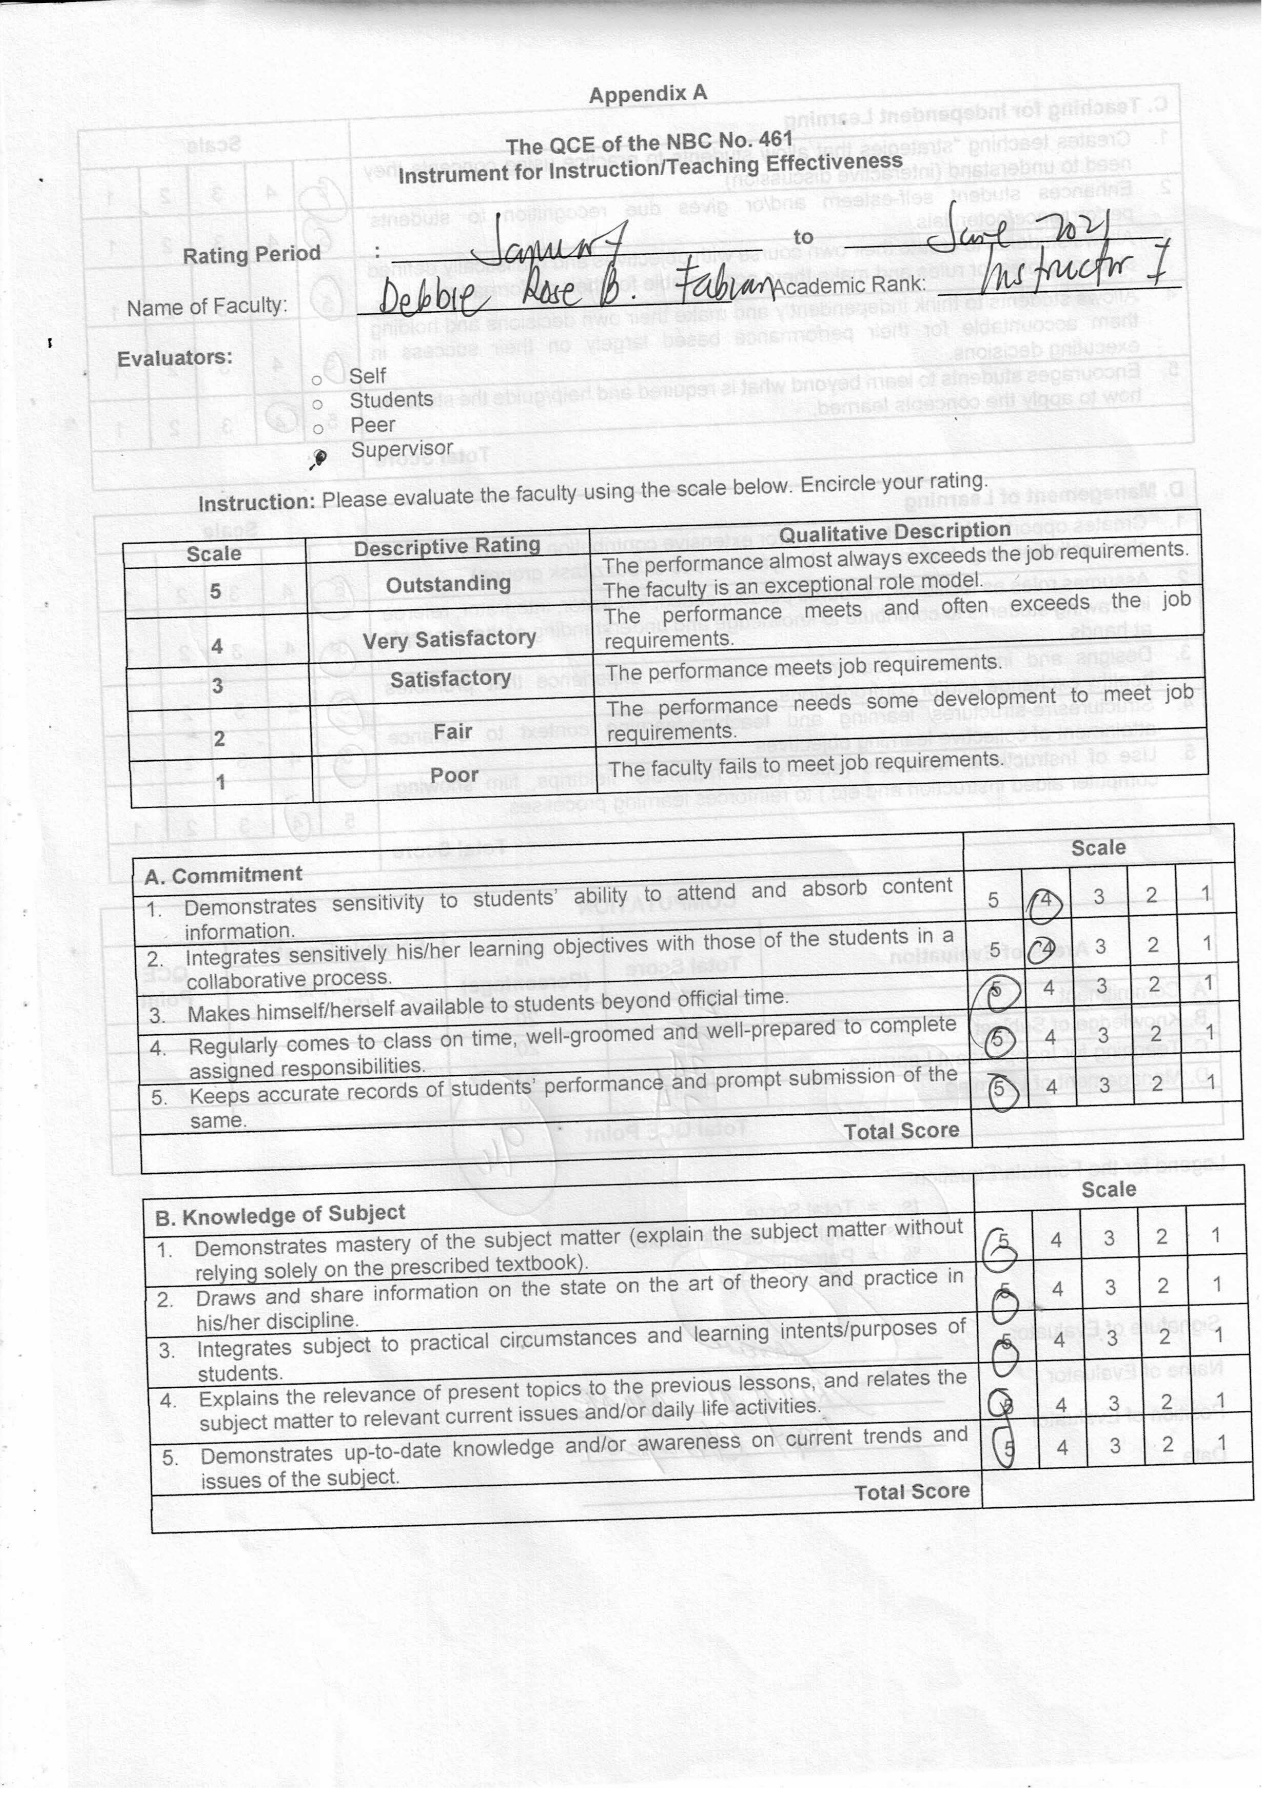 Appendix A
The QCE of the NBC No. 461
Instrument for Instruction/Teaching Effectiveness
Rating Period : January to June 2021
Name of Faculty: Debbie Rose B. Fabian Academic Rank: Instructor I
Evaluators:
Self
Students
Peer
Supervisor
Instruction: Please evaluate the faculty using the scale below. Encircle your rating.
Scale Descriptive Rating Qualitative Description
5 Outstanding The performance almost always exceeds the job requirements.
The faculty is an exceptional role model.
4 Very Satisfactory The performance meets and often exceeds the job
requirements.
3 Satisfactory The performance meets job requirements.
2 Fair The performance needs some development to meet job
requirements.
1 Poor The faculty fails to meet job requirements.
A. Commitment Scale
1. Demonstrates sensitivity to students' ability to attend and absorb content 5 4 3 2 1
information.
2. Integrates sensitively his/her learning objectives with those of the students in a 5 4 3 2 1
collaborative process.
3. Makes himself/herself available to students beyond official time. 5 4 3 2 1
4. Regularly comes to class on time, well-groomed and well-prepared to complete 5 4 3 2 1
assigned responsibilities.
5. Keeps accurate records of students' performance and prompt submission of the 5 4 3 2 1
same.
Total Score
B. Knowledge of Subject Scale
1. Demonstrates mastery of the subject matter (explain the subject matter without 5 4 3 2 1
relying solely on the prescribed textbook).
2. Draws and share information on the state on the art of theory and practice in 5 4 3 2 1
his/her discipline.
3. Integrates subject to practical circumstances and learning intents/purposes of 5 4 3 2 1
students.
4. Explains the relevance of present topics to the previous lessons, and relates the 5 4 3 2 1
subject matter to relevant current issues and/or daily life activities.
5. Demonstrates up-to-date knowledge and/or awareness on current trends and 5 4 3 2 1
issues of the subject.
Total Score